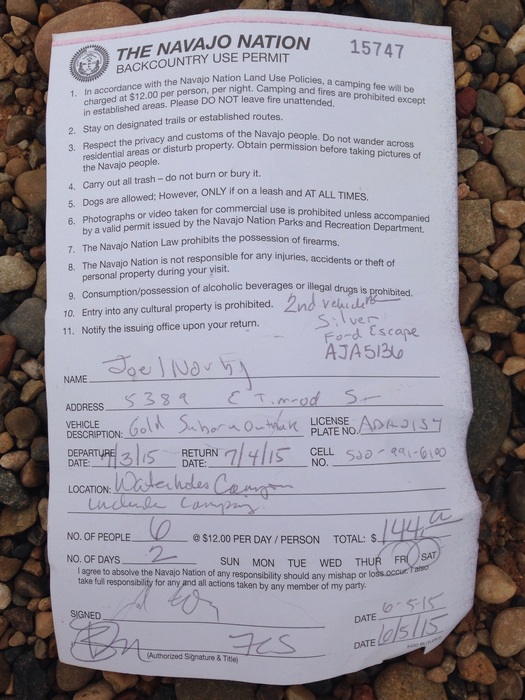 THE NAVAJO NATION
BACKCOUNTRY USE PERMIT
15747
1. In accordance with the Navajo Nation Land Use Policies, a camping fee will be
charged at $12.00 per person, per night. Camping and fires are prohibited except
in established areas. Please DO NOT leave fire unattended.
2. Stay on designated trails or established routes.
3. Respect the privacy and customs of the Navajo people. Do not wander across
residential areas or disturb property. Obtain permission before taking pictures of
the Navajo people.
4. Carry out all trash – do not burn or bury it.
5. Dogs are allowed; However, ONLY if on a leash and AT ALL TIMES.
6. Photographs or video taken for commercial use is prohibited unless accompanied
by a valid permit issued by the Navajo Nation Parks and Recreation Department.
7. The Navajo Nation Law prohibits the possession of firearms.
8. The Navajo Nation is not responsible for any injuries, accidents or theft of
personal property during your visit.
9. Consumption/possession of alcoholic beverages or illegal drugs is prohibited.
10. Entry into any cultural property is prohibited.
11. Notify the issuing office upon your return.
2nd vehicle
Silver
Ford Escape
AJA5136
NAME Joel
ADDRESS 5389 E
VEHICLE DESCRIPTION: Gold LICENSE PLATE NO.
DEPARTURE DATE: 7/3/15 RETURN DATE: 7/4/15 CELL NO. 520-991-6100
LOCATION: Waterholes Canyon
include
NO. OF PEOPLE 6 @ $12.00 PER DAY / PERSON TOTAL: $ 144
NO. OF DAYS 2 SUN MON TUE WED THUR FRI SAT
I agree to absolve the Navajo Nation of any responsibility should any mishap or loss occur. I also
take full responsibility for any and all actions taken by any member of my party.
SIGNED DATE 6-5-15
(Authorized Signature & Title) DATE 6/5/15